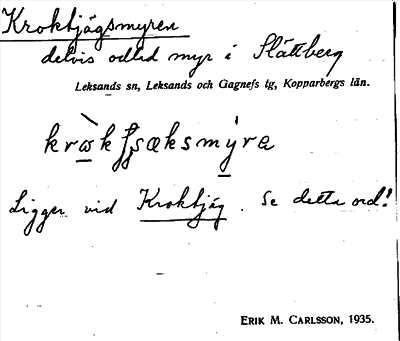 Kroktjägsmyren
delvis odlad myr i Slättberg
Leksands sn, Leksands och Gagnefs tg, Kopparbergs län.
Ligger vid Kroktjäg. Se detta ord!
ERIK M. CARLSSON, 1935.